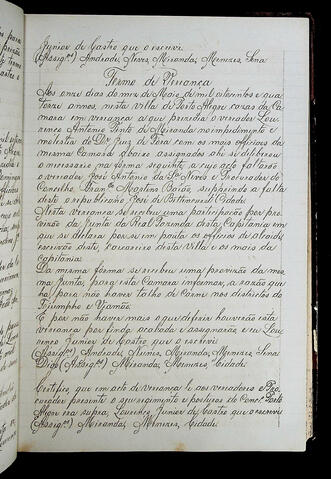 Junior de Castro que o escrevi
(Assig.os) Andrade, Neves, Miranda, Menezes, Sena
Termo de Vereança
Aos onze dias do mez de Maio de mil oitocentos e qua
torze annos, nesta villa de Porto Alegre cazas da Ca
mara em vereança a que prezedia o vereador Lou
renco Antônio Pinto de Miranda no impedimento e
molestia do Dr. Juiz de Fora com os mais officiaes da
mesma Camara abaixo assignados ahi se diferio
o necessario na forma seguinte a cujo acto faltarão
o vereador José Antonio da S.a Neves e Procurador do
Concelho Fran.co Martins Baião, suprindo a falta
deste o republicano José de Bithencourt Cidade
Nesta vereança se recebeu uma participação por pro
vizão da Junta da Real Fazenda desta Capitania em
que se declara por sem posto os officios de alcaide
escrivão deste, carcereiro desta villa e os mais da
capitania.
Da mesma forma se recebeu uma provizão da mes
ma Junta, para esta Camara informar, a razão que
ha para não haver talho de Carne nos districtos do
Triumpho e Viamão.
E por não haver mais o que diferir houverão esta
vereança por finda acabada e assignarão e eu Lou
renco Junior de Castro, que o escrevi
(Assig.os) Andrade, Nunes, Miranda, Menezes, Sena
Digo (Assig.os) Miranda, Menezes, Cidade
Certifico que em acto de vereança le aos vereadores e Pro
curador prezente o seu regimento e posturas do Conc.o Porto
Alegre era supra, Lourenço Junior de Castro que o escrevi
(Assig.os) Miranda, Menezes, Cidade